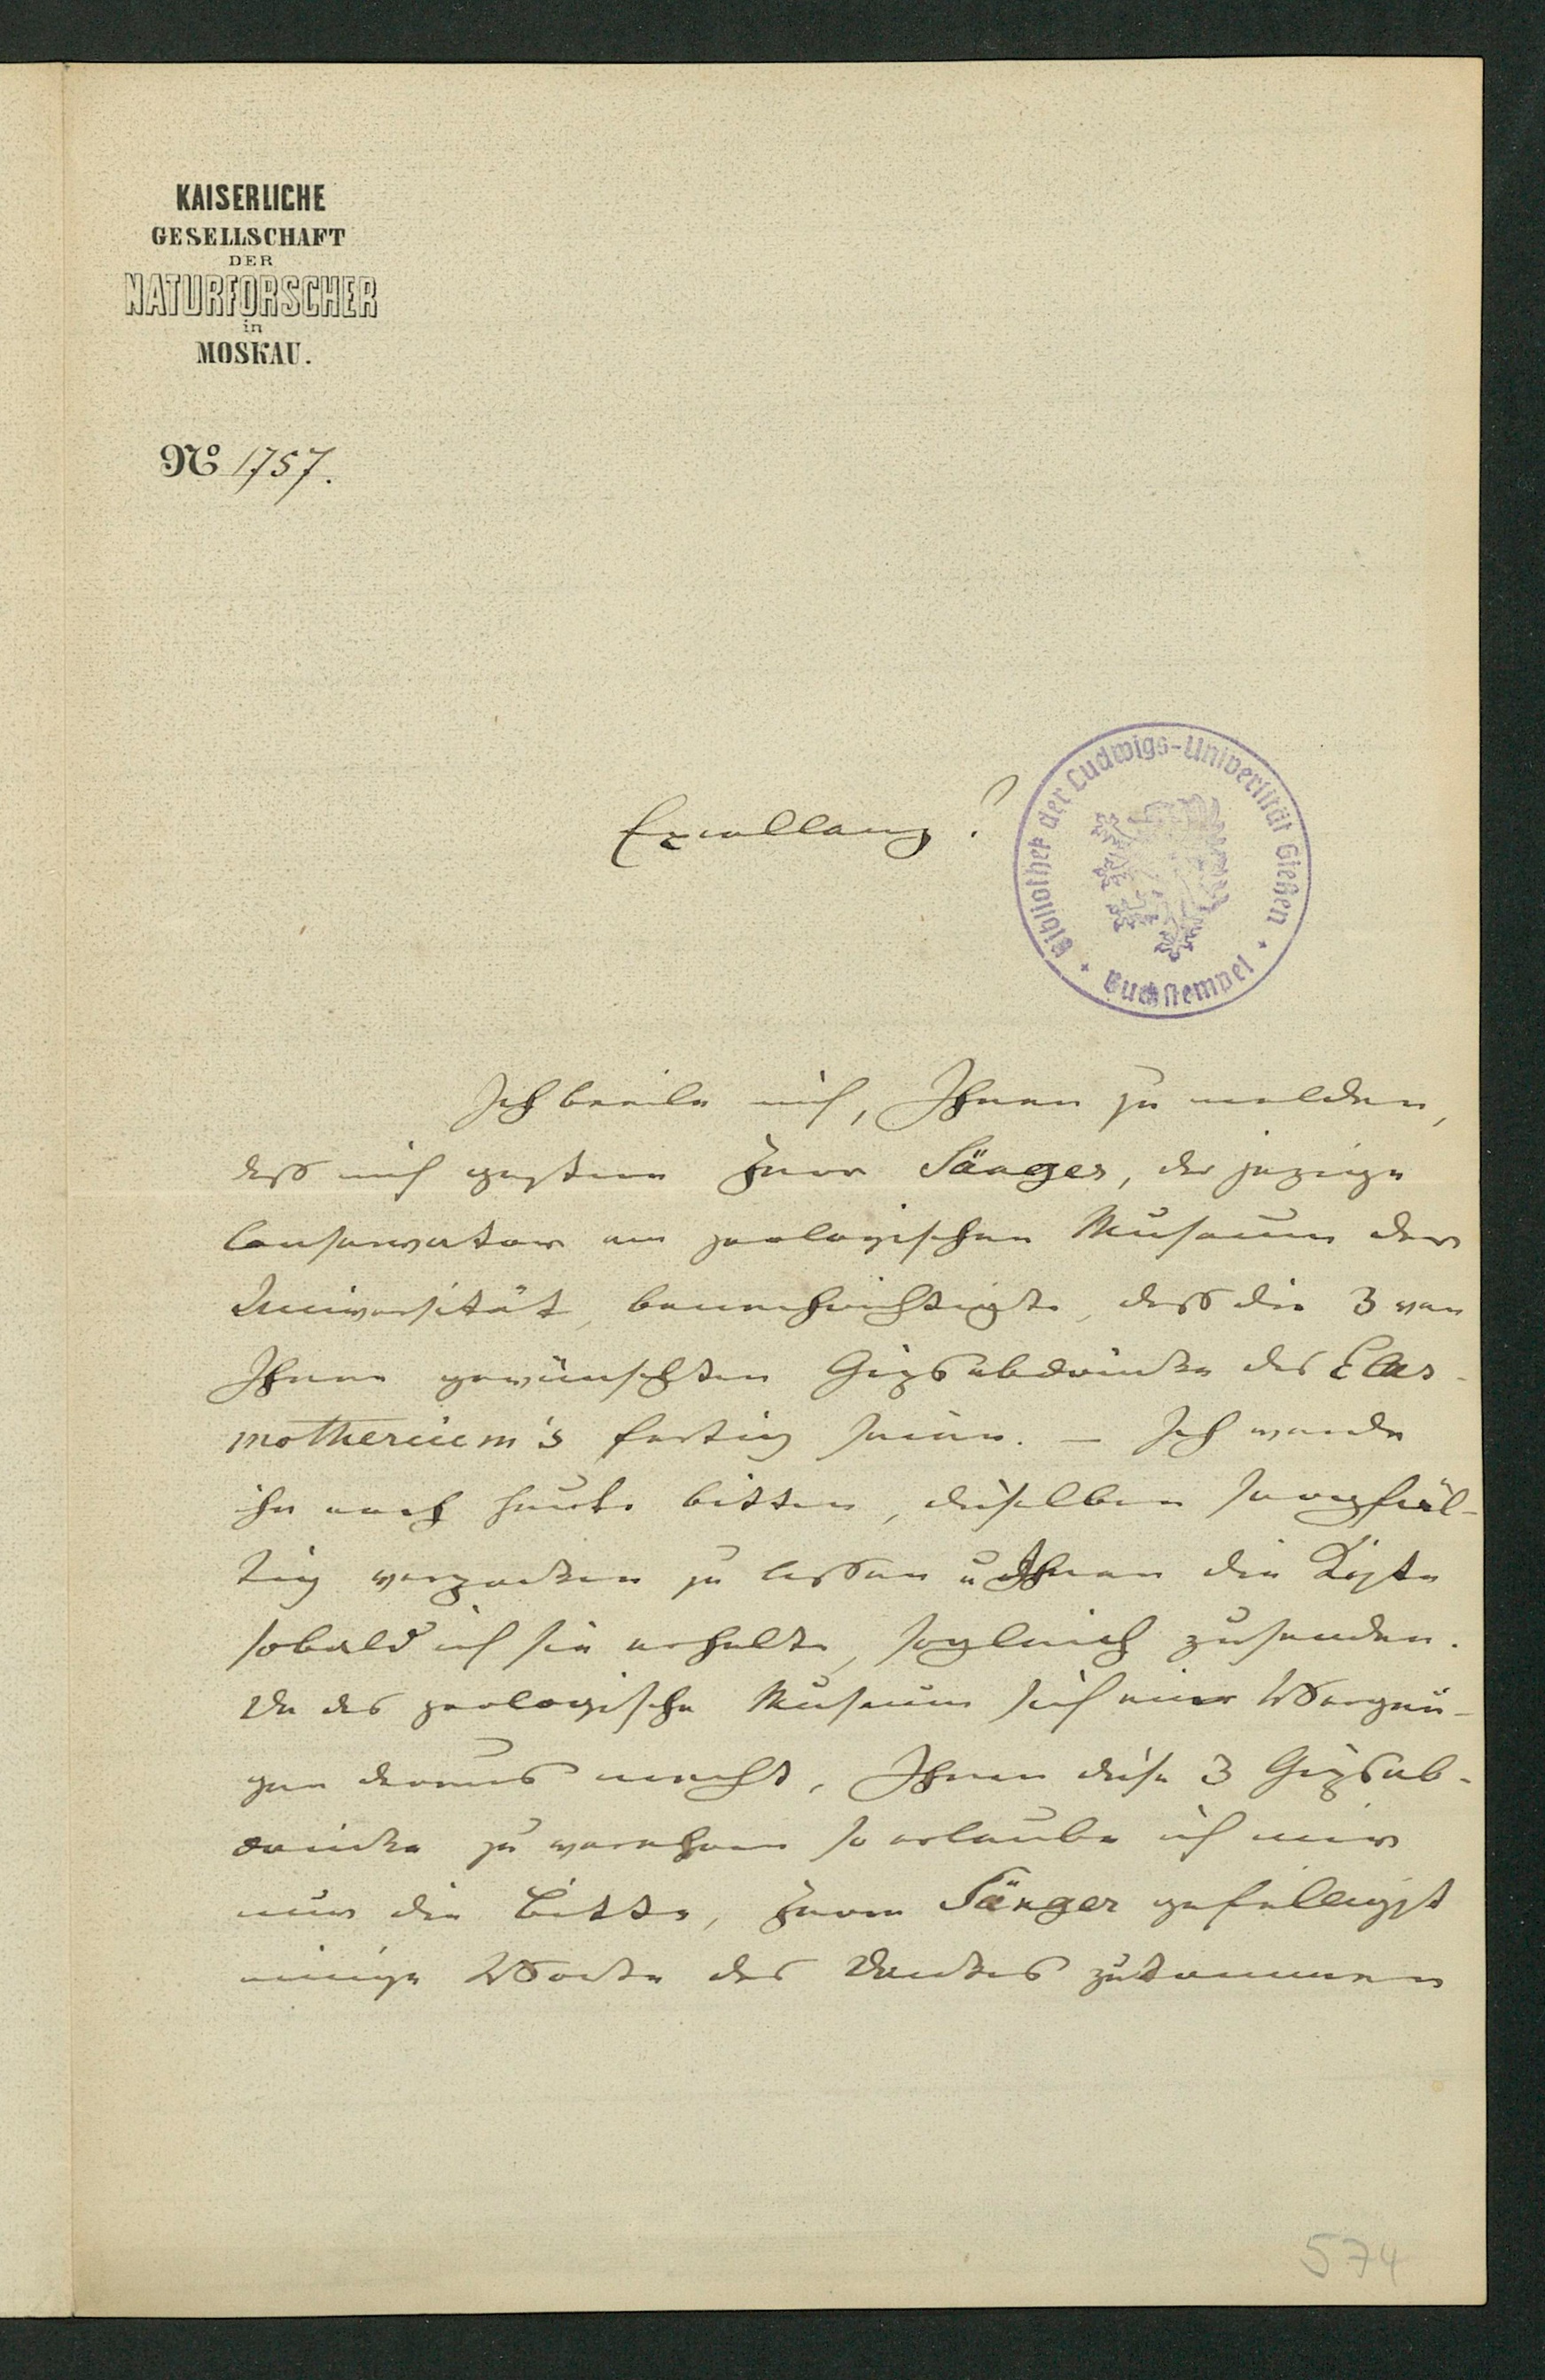 KAISERLICHE
GESELLSCHAFT
DER
NATURFORSCHER
in
MOSKAU.
No 1757.
Excellenz!
Bibliothek der Ludwigs-Universität Gießen
Buchstempel
Ich beeile mich, Ihnen zu melden,
daß mich gestern Herr Sänger, der jezige
Conservator am zoologischen Museum der
Universität, benachrichtigte, daß die 3 von
Ihnen gewünschten Gipsabdrücke des Elas-
motherium's fertig seien. – Ich werde
ihn noch heute bitten, dieselben sorgfäl-
tig verpacken zu lassen u Ihnen die Kiste
sobald ich sie erhalte, sogleich zusenden.
Da das zoologische Museum sich ein Vergnü-
gen daraus macht, Ihnen diese 3 Gipsab-
drücke zu verehren so erlaube ich mir
nur die Bitte, Herrn Sänger gefälligst
einige Worte des Dankes zukommen
574